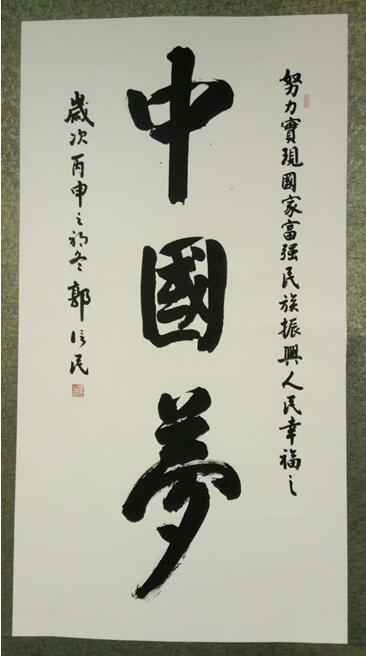 努力實現國家富强民族振興人民幸福之
中國夢
歲次丙申之初冬郭信民